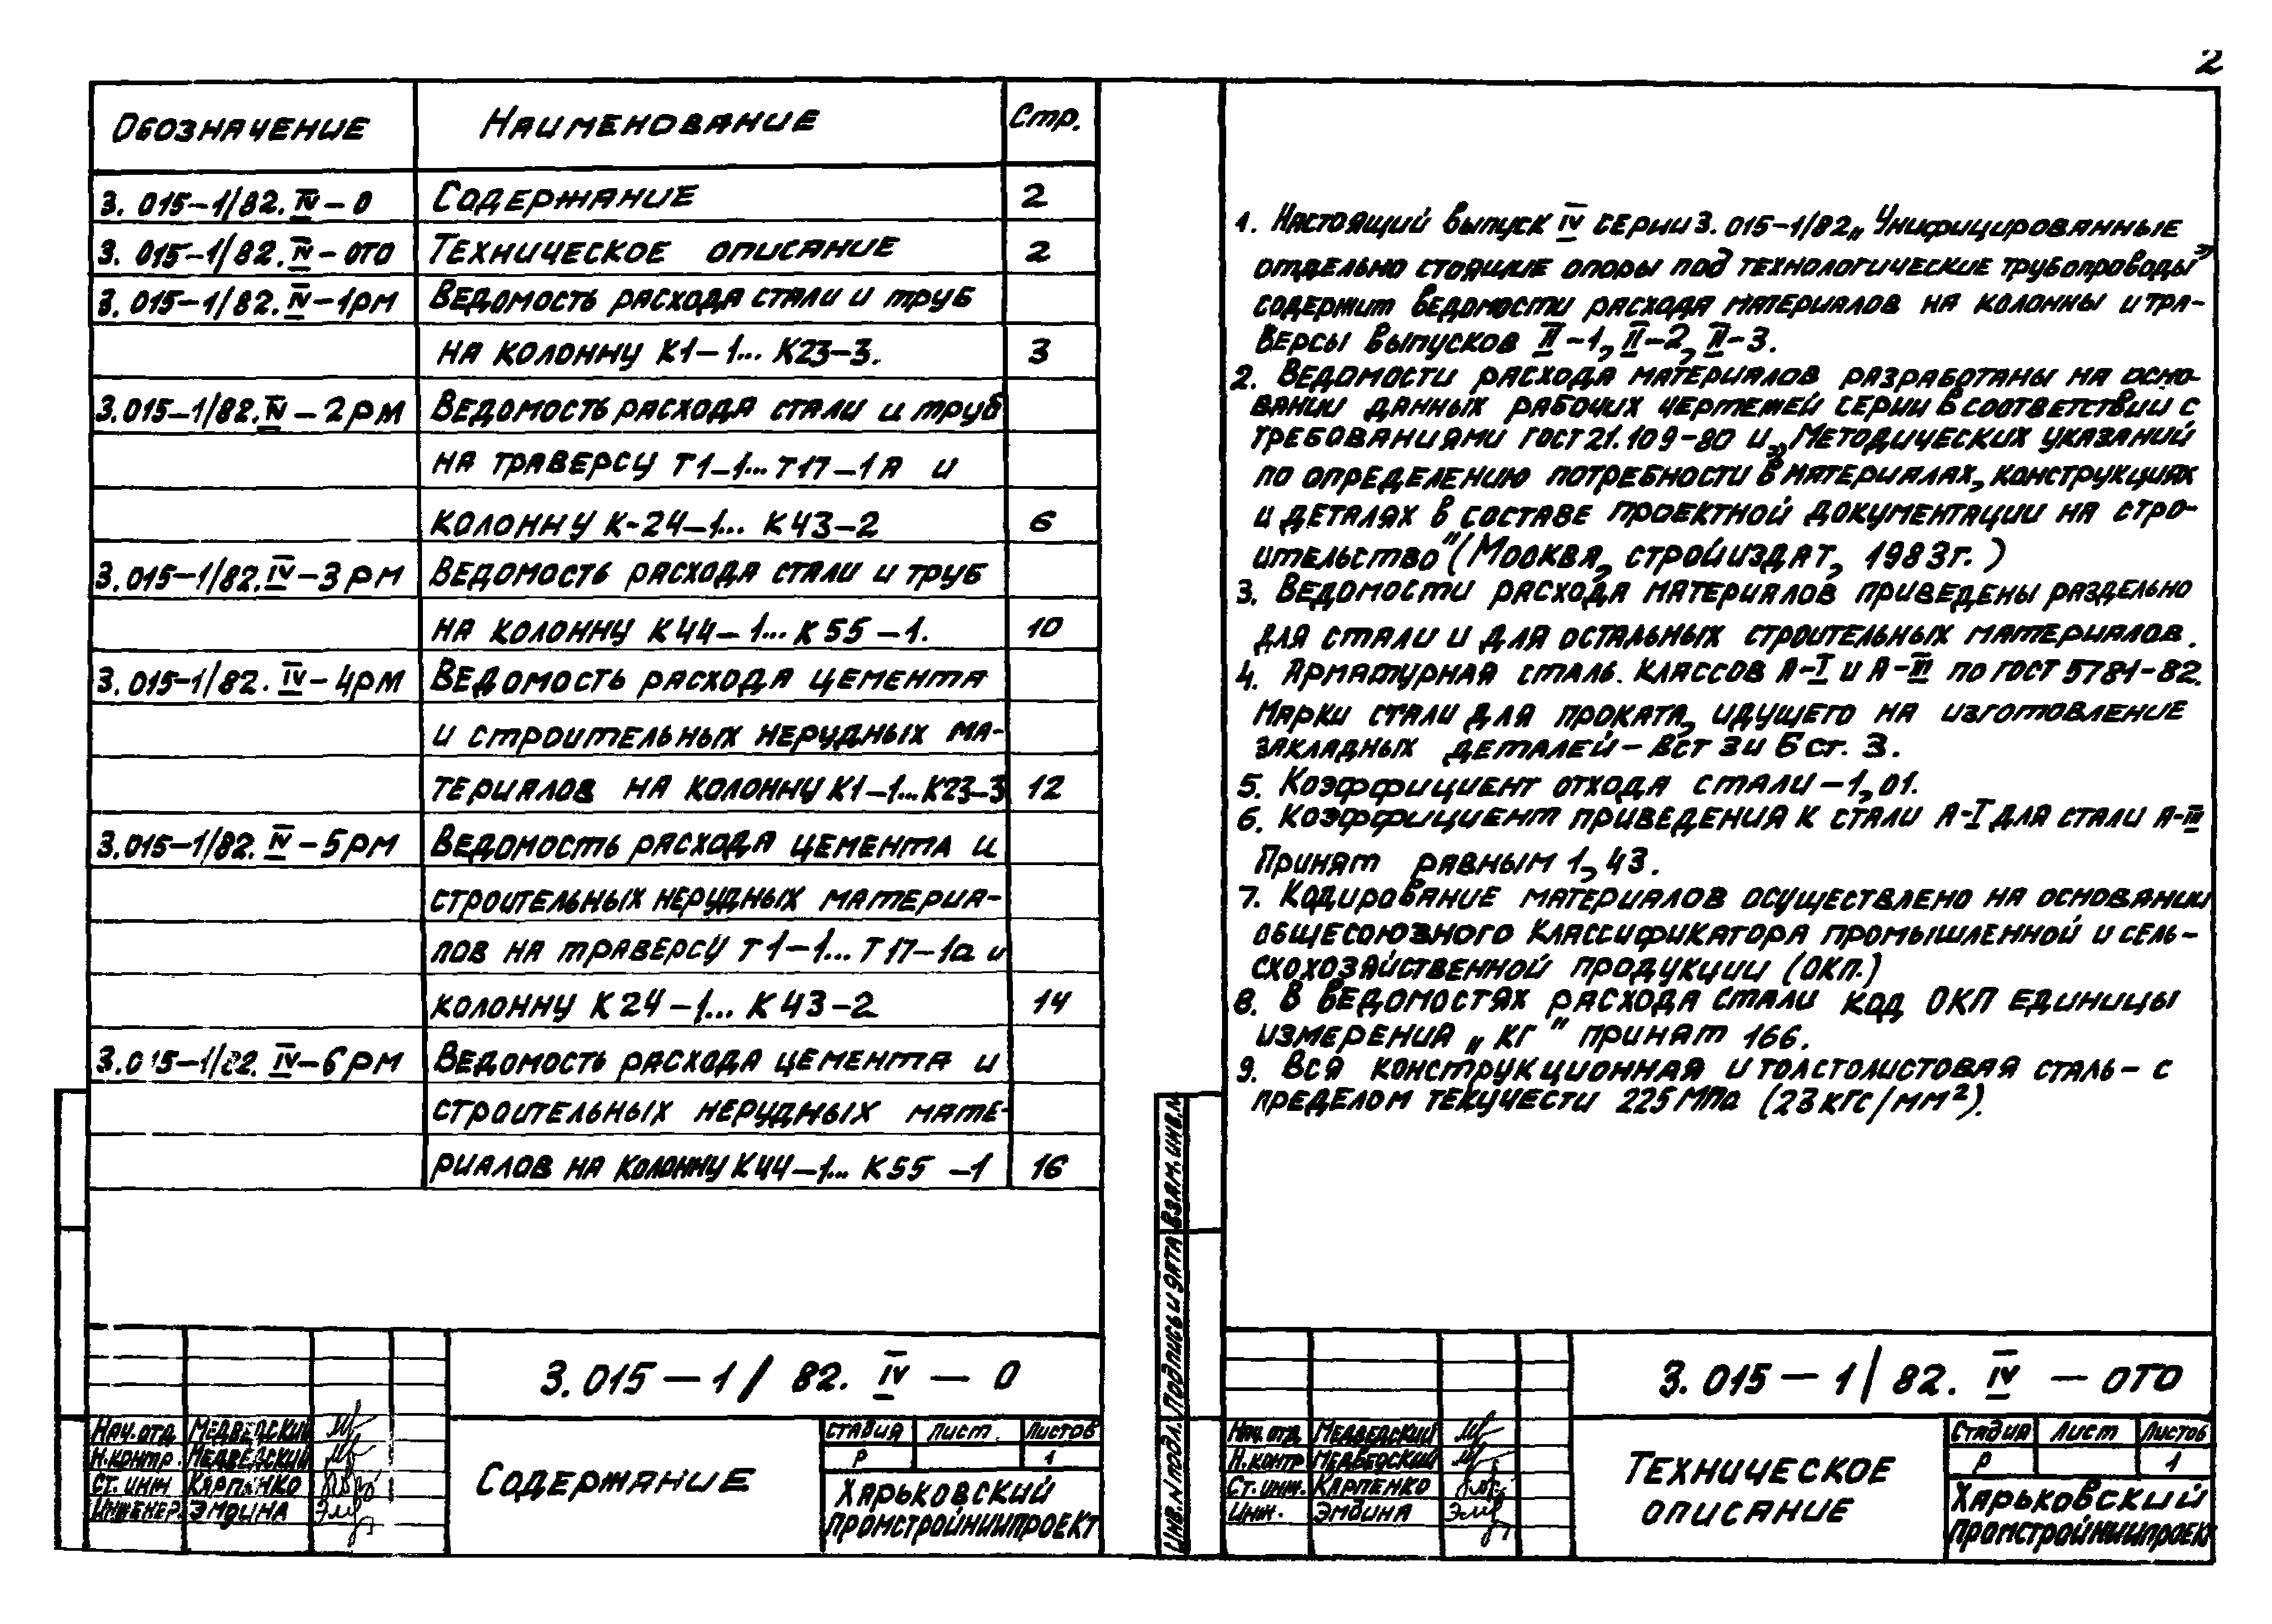 2
Обозначение Наименование Стр.
3.015-1/82.IV-0 Содержание 2
3.015-1/82.IV-ОТО Техническое описание 2
3.015-1/82.IV-1РМ Ведомость расхода стали и труб
на колонну К1-1... К23-3. 3
3.015-1/82.IV-2РМ Ведомость расхода стали и труб
на траверсу Т1-1...Т17-1А и
колонну К-24-1... К43-2 6
3.015-1/82.IV-3РМ Ведомость расхода стали и труб
на колонну К44-1... К55-1. 10
3.015-1/82.IV-4РМ Ведомость расхода цемента
и строительных нерудных ма-
териалов на колонну К1-1...К23-3 12
3.015-1/82.IV-5РМ Ведомость расхода цемента и
строительных нерудных материа-
лов на траверсу Т1-1... Т17-1а и
колонну К24-1... К43-2 14
3.015-1/82.IV-6РМ Ведомость расхода цемента и
строительных нерудных мате-
риалов на колонну К44-1... К55-1 16
3.015-1/82.IV-0
Нач.отд. Медведский
Н.контр. Медведский
Ст. инж Карпенко
Инженер. Эмдина
Содержание
Стадия Лист Листов
Р 1
Харьковский
Промстройниипроект
1. Настоящий выпуск IV серии 3.015-1/82 „Унифицированные
отдельно стоящие опоры под технологические трубопроводы”
содержит ведомости расхода материалов на колонны и тра-
версы выпусков II-1, II-2, II-3.
2. Ведомости расхода материалов разработаны на осно-
вании данных рабочих чертежей серии в соответствии с
требованиями ГОСТ 21.109-80 и „Методических указаний
по определению потребности в материалах, конструкциях
и деталях в составе проектной документации на стро-
ительство” (Москва, Стройиздат, 1983г.)
3. Ведомости расхода материалов приведены раздельно
для стали и для остальных строительных материалов.
4. Арматурная сталь. классов А-I и А-III по ГОСТ 5781-82.
Марки стали для проката, идущего на изготовление
закладных деталей - ВСт 3 и Б Ст. 3.
5. Коэффициент отхода стали - 1,01.
6. Коэффициент приведения к стали А-I для стали А-III
Принят равным 1,43.
7. Кодирование материалов осуществлено на основании
общесоюзного классификатора промышленной и сель-
скохозяйственной продукции (ОКП.)
8. В ведомостях расхода стали код ОКП единицы
измерения „кг” принят 166.
9. Вся конструкционная и толстолистовая сталь - с
пределом текучести 225 МПа (23 кгс/мм²).
Инв.N подл. Подпись и дата Взам.инв.N
3.015-1/82.IV-ОТО
Нач. отд. Медведский
Н.контр Медведский
Ст. инж. Карпенко
Инж. Эмдина
Техническое
описание
Стадия Лист Листов
Р 1
Харьковский
Промстройниипроект